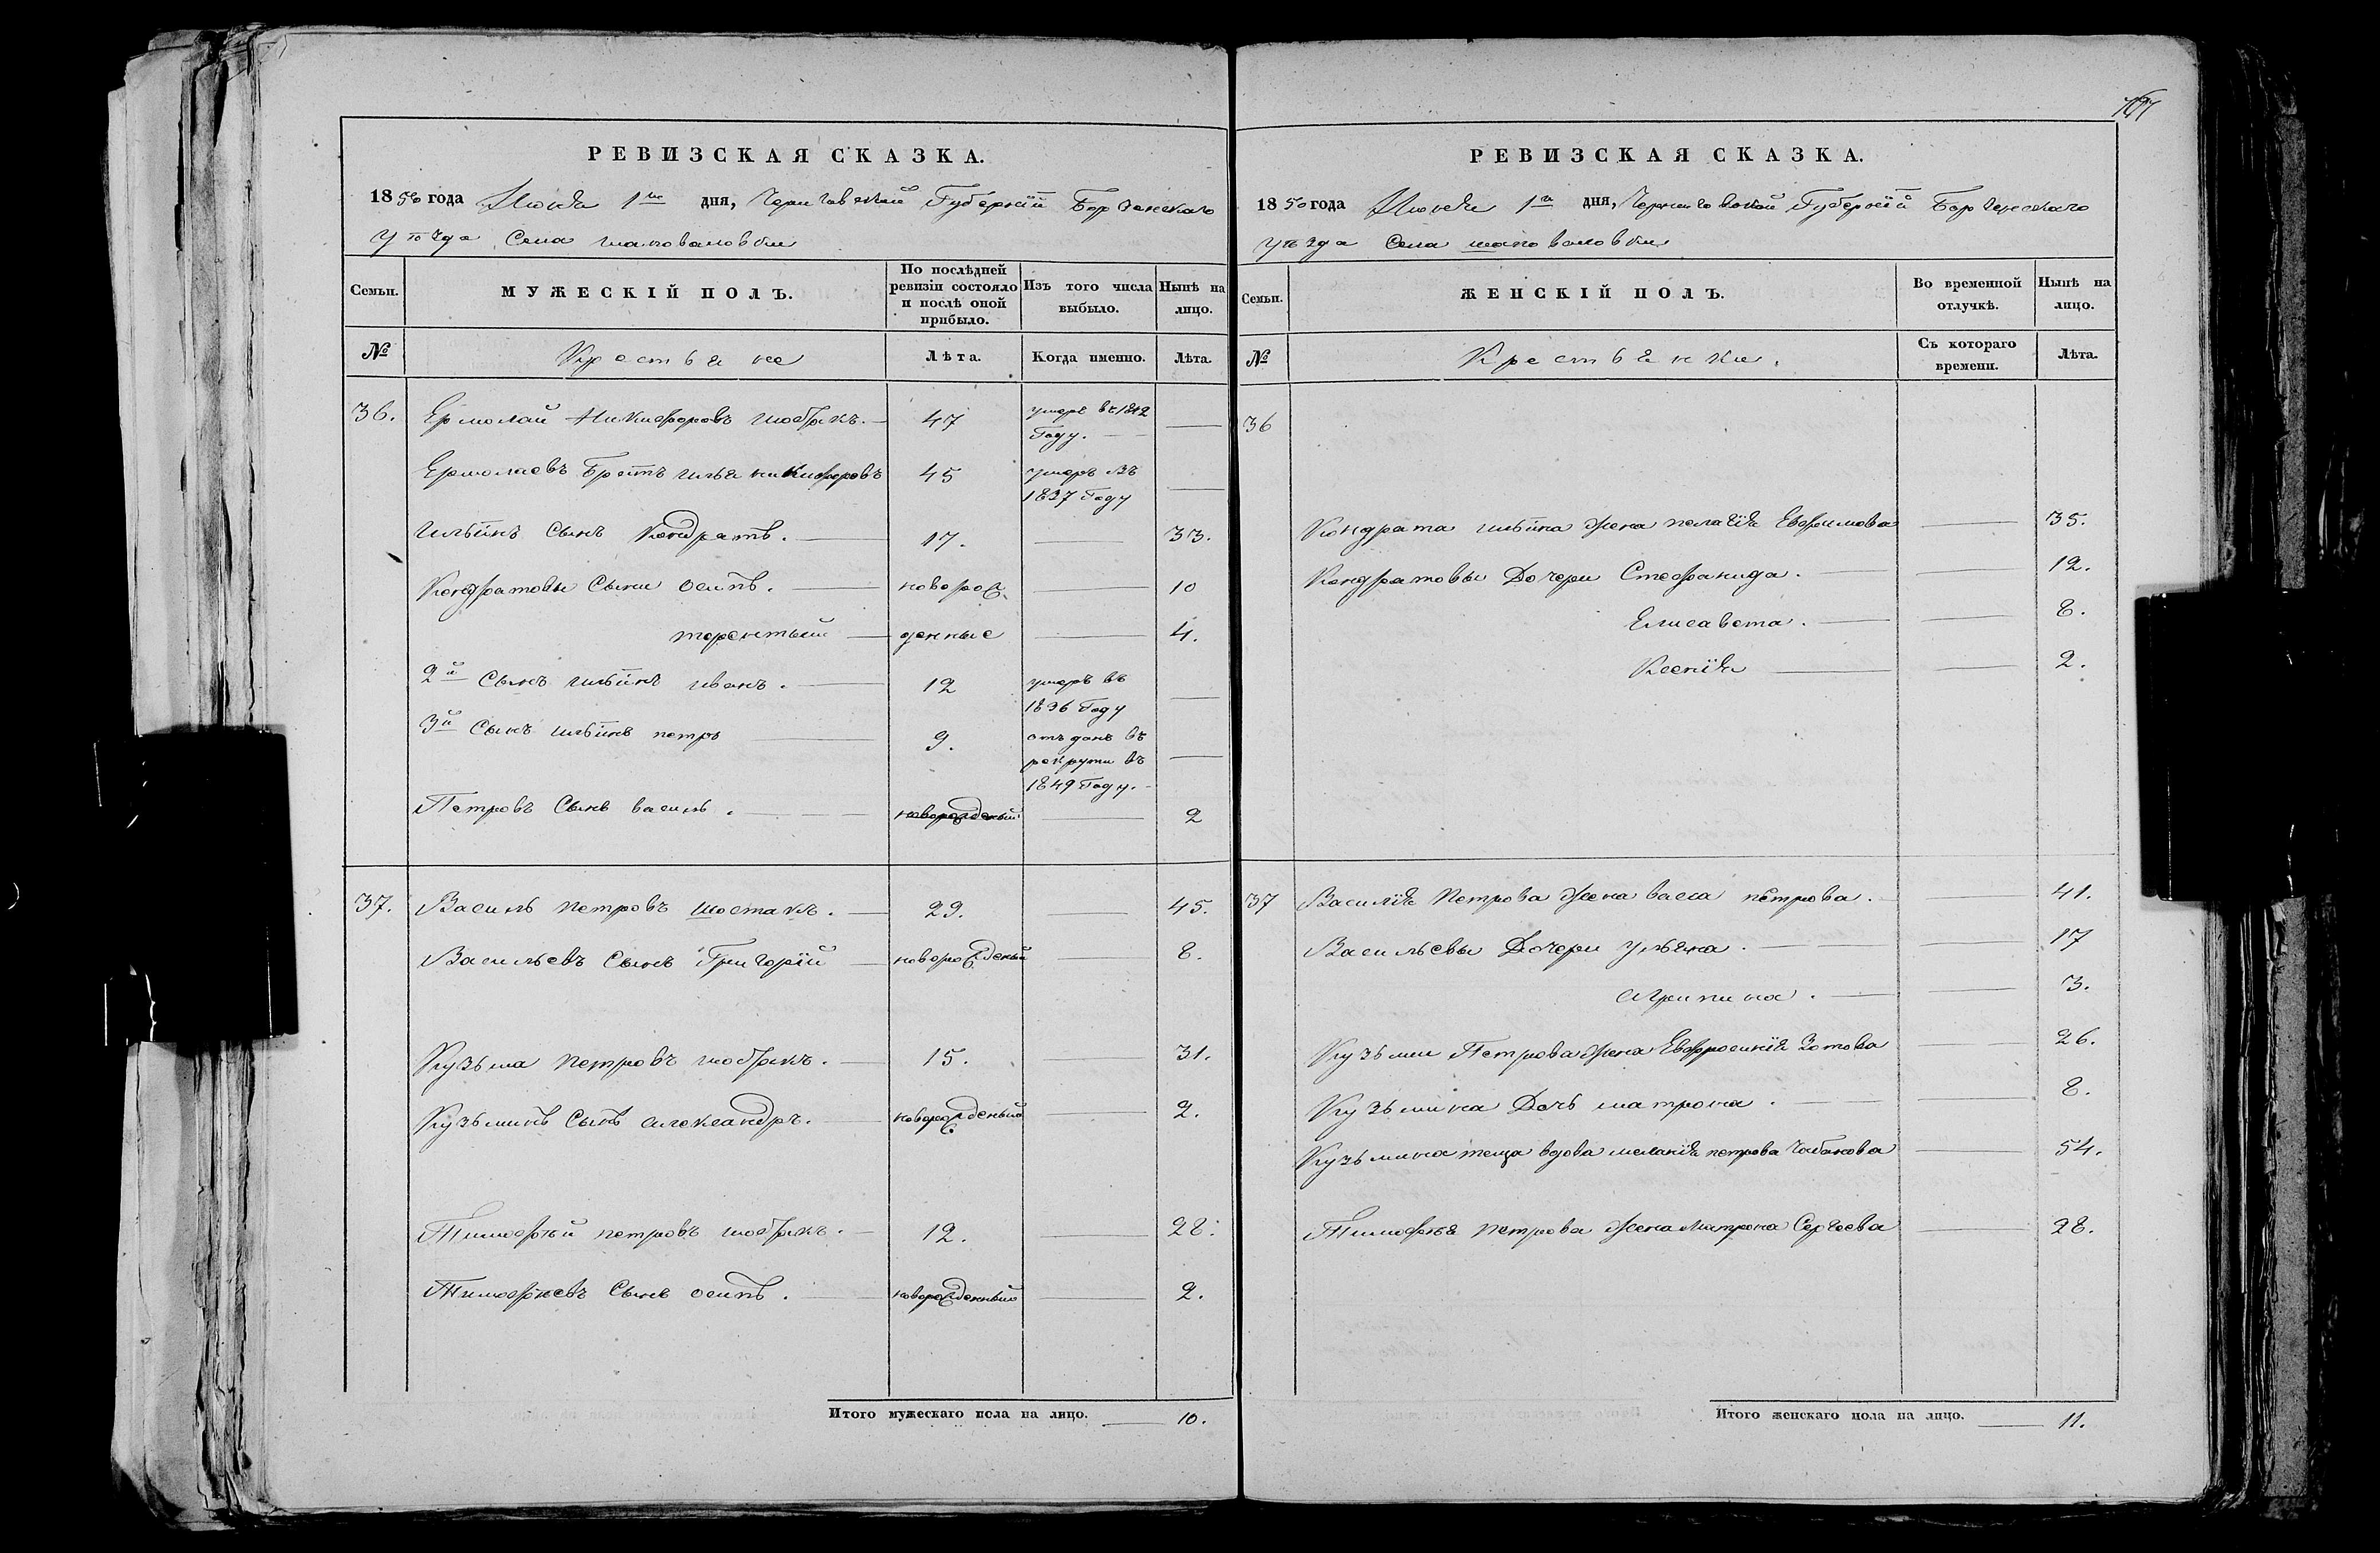 РЕВИЗСКАЯ СКАЗКА.
1850 года Июня 1го дня, Черниговской Губерніи Борзенскаго
уѣзда Села шаповаловки
Семьи. МУЖЕСКІЙ ПОЛЪ. По послѣдней ревизіи состояло и послѣ оной прибыло. Изъ того числа выбыло. Нынѣ на лицо.
№ Крестьяне Лѣта. Когда именно. Лѣта.
36. Ермолай Никифоровъ шостакъ. 47 умеръ въ 1842 Году.
Ермолаевъ Братъ илья никифоровъ 45 умеръ въ 1837 Году
ильинъ Сынъ Кондратъ. 17. 33.
Кондратовы Сыни осипъ. новорож 10
терентьий денные 4.
2й Сынъ ильинъ иванъ. 12 умеръ въ 1836 Году
3й Сынъ ильинъ петръ 9. отъданъ въ рекруты въ 1849 Году.
Петровъ Сынъ василь. новорожденый 2
37. Василь петровъ шостакъ. 29. 45.
Васильевъ Сынъ Григорій новорожденый 8.
Кузьма петровъ шостакъ. 15. 31.
Кузьминъ Сынъ александръ. новорожденый 2.
Тимофѣй петровъ шостакъ. 12. 28.
Тимофѣевъ Сынъ осипъ. новорожденный 2.
Итого мужескаго пола на лицо. 10.
РЕВИЗСКАЯ СКАЗКА.
1850 года Июня 1го дня, Черниговской Губерніи Борзенскаго
уѣзда Села шаповаловки
Семьи. ЖЕНСКІЙ ПОЛЪ. Во временной отлучкѣ. Нынѣ на лицо.
№ Крестьянки. Съ котораго времени. Лѣта.
36
Кондрата ильина жена пелагія Ефимова 35.
Кондратовы Дочери Стефанида. 12.
Елисавета. 8.
Ксенія 2.
37 Василія Петрова жена васса петрова. 41.
Васильевы Дочери ульяна. 17
агрипина. 3.
Кузьмы Петрова жена Евфросинія Зотова 26.
Кузьмина Дочь матрона. 8.
Кузьмина теща вдова меланія петрова 54.
Тимофѣя петрова жена Матрона Сергѣева 28.
Итого женскаго пола на лицо. 11.